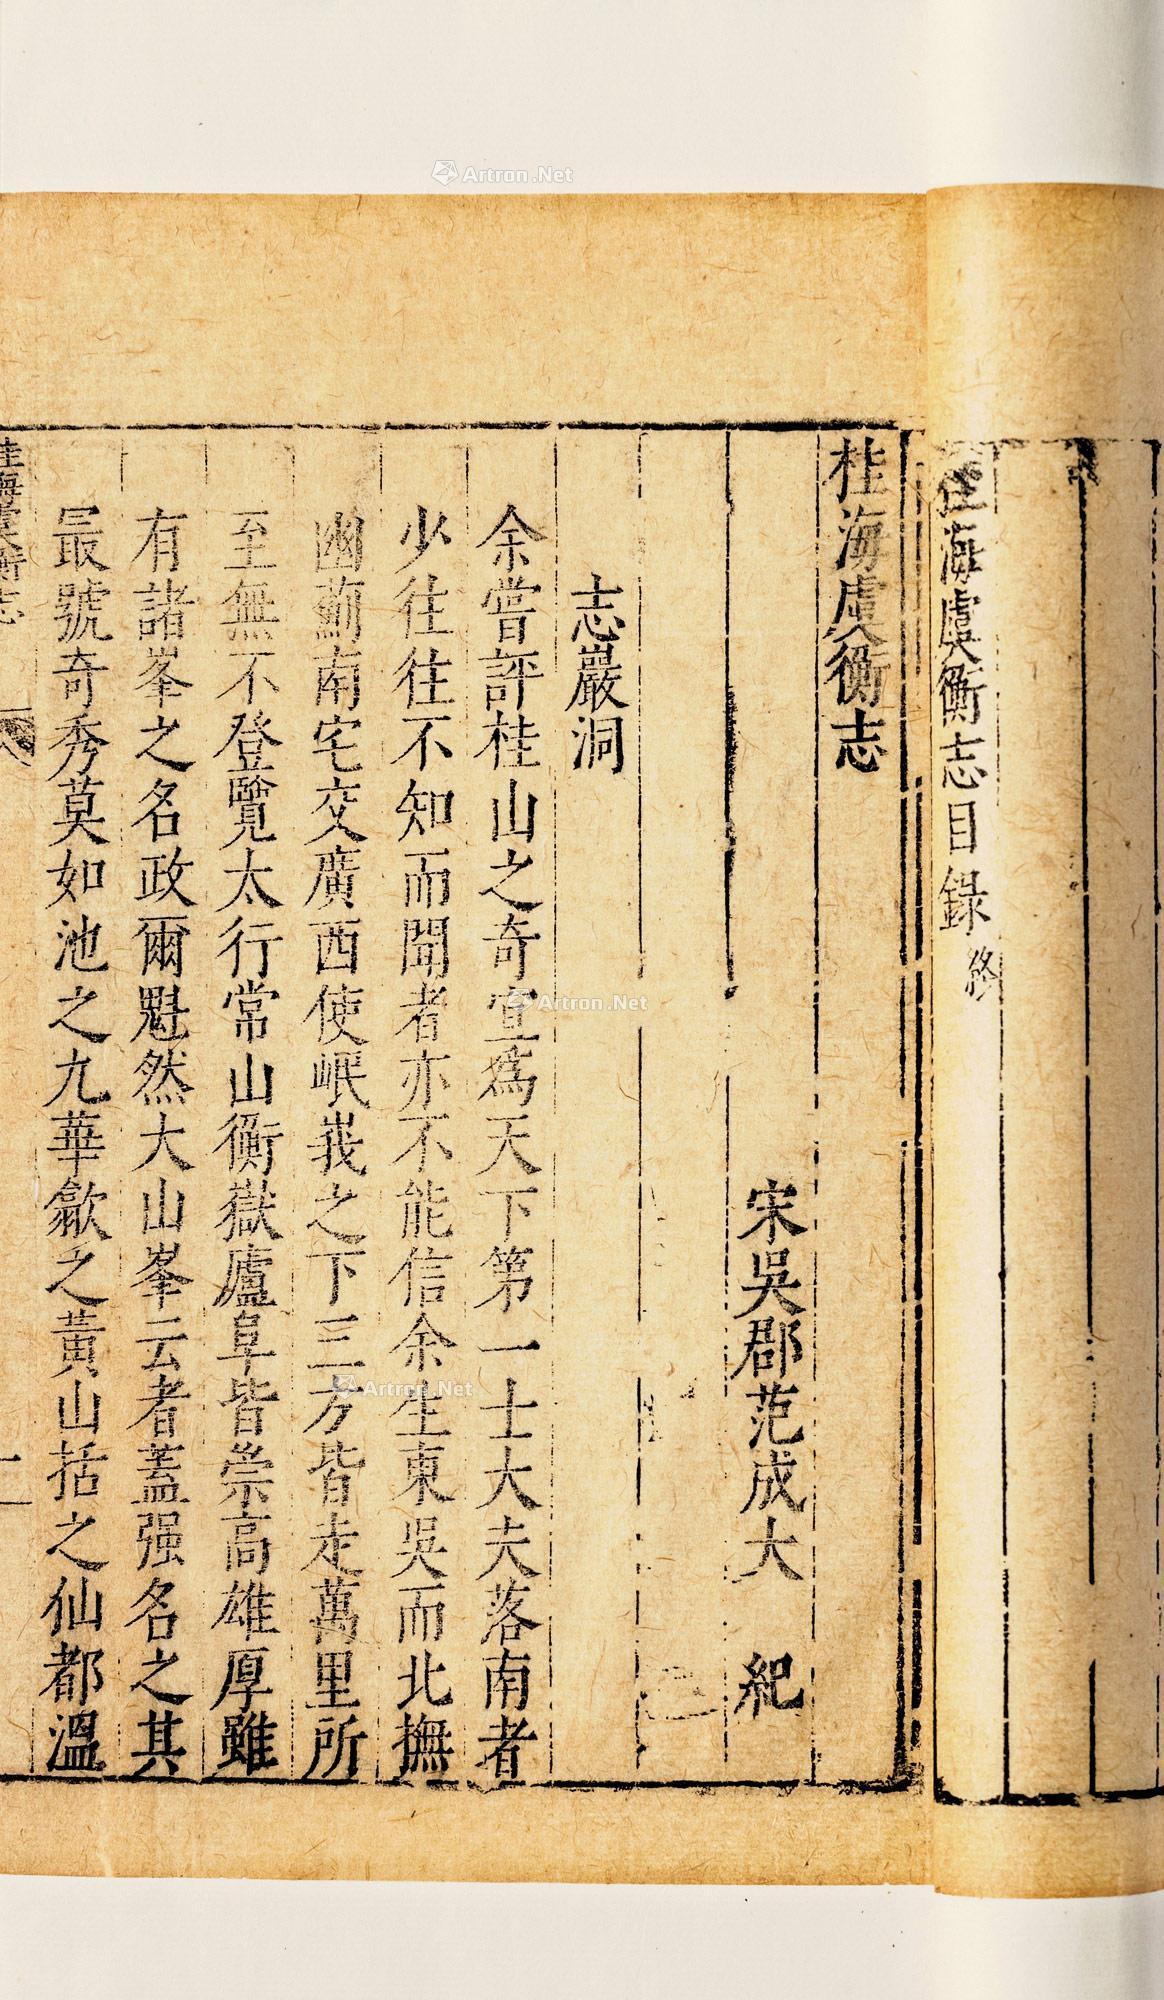 桂海虞衡志目錄終
桂海虞衡志
宋吳郡范成大 紀
志巖洞
余嘗評桂山之奇宜爲天下第一士大夫落南者
少往往不知而聞者亦不能信余生東吳而北撫
幽薊南宅交廣西使岷峩之下三方皆走萬里所
至無不登覽太行常山衡嶽廬阜皆崇高雄厚雖
有諸峯之名政爾魁然大山峯云者蓋强名之其
最號奇秀莫如池之九華歙之黃山括之仙都溫
桂海虞衡志
Artron.Net
Artron.Net
Artron.Net